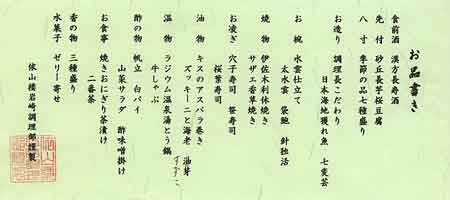 お品書き
食前酒 漢方長寿酒
先付 砂丘長芋桜豆腐
八寸 季節の品七種盛り
お造り 調理長こだわり
日本海地獲れ魚 七変芸
お椀 水雲仕立て
太水雲 袋鮑 針独活
焼物 伊佐木利休焼き
サザエ香草焼き
お凌ぎ 穴子寿司 笹寿司
桜葉寿司
油物 キスのアスパラ巻き
ズッキーニと海老 油芽
すずこ
温物 ラジウム温泉湯とう鍋
牛しゃぶ
酢の物 帆立 白バイ
山菜サラダ 酢味噌掛け
お食事 焼きおにぎり茶漬け
二番茶
香の物 三種盛り
水菓子 ゼリー寄せ
依山楼岩崎調理部謹製